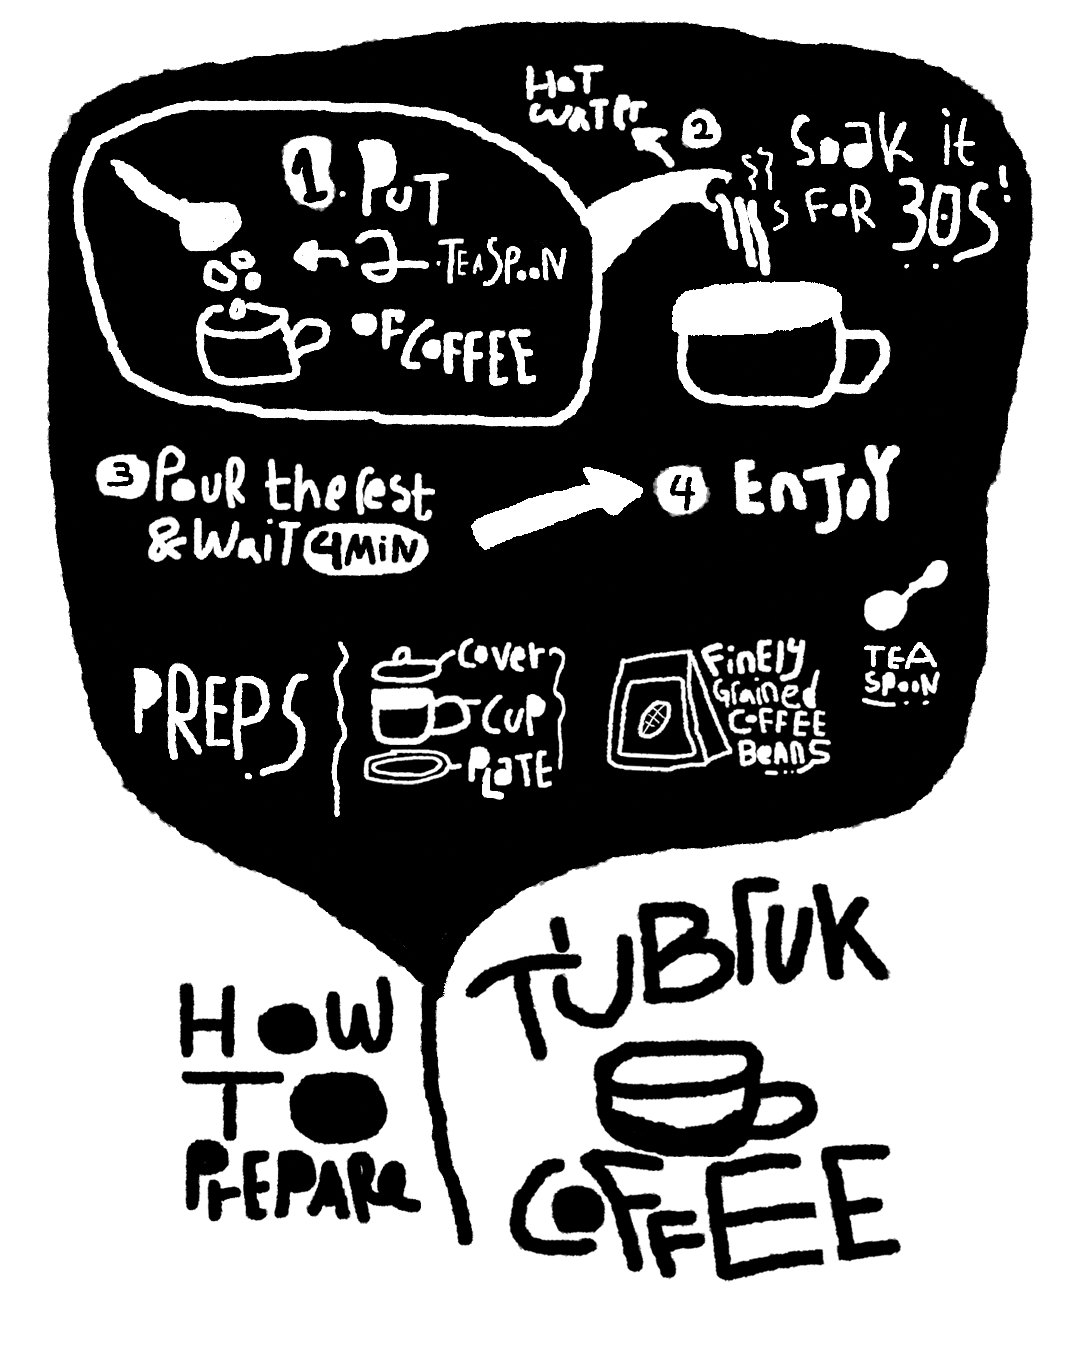 1. PUT
2 TEASPOON
OF COFFEE
HOT
WATER
2 Soak it
FOR 30S!
3 Pour the rest
& Wait 4 MiN
4 EnJoY
PREPS
Cover
CUP
PLaTE
FinEly
Grained
COFFEE
BEANS
TEA
SPOON
HOW
TO
PrEPARe
TUBrUK
COFFEE